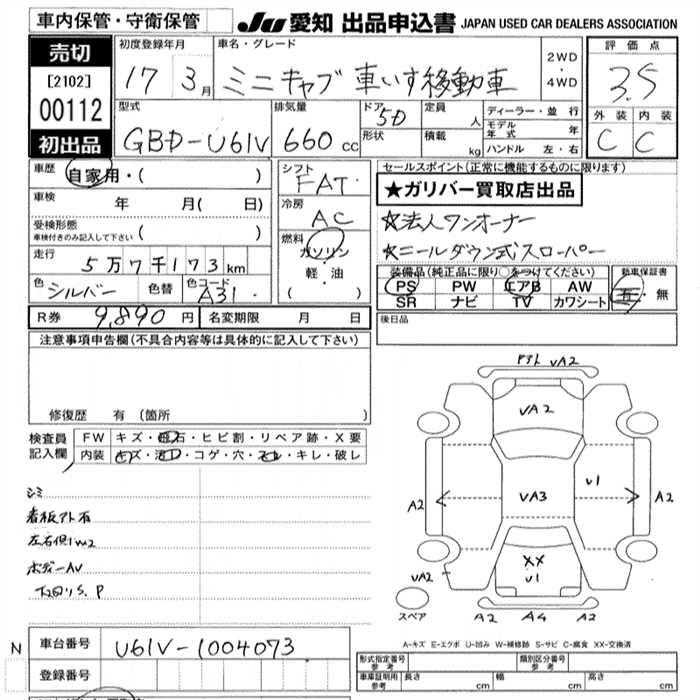 車内保管・守衛保管
JU 愛知 出品申込書 JAPAN USED CAR DEALERS ASSOCIATION
売切
[2102]
00112
初出品
初度登録年月
17 3月
車名・グレード
ミニキャブ 車いす移動車
2WD
4WD
評価点
3.5
型式
GBD-U61V
排気量
660 cc
ドア
5D
形状
定員
人
積載
kg
ディーラー・並 行
モデル年式 年
ハンドル 左・右
外装 内装
C C
車歴
自家用・( )
車検
年 月( 日)
受検形態
車検付きのみ記入して下さい ( )
走行
5万7千173km
色
シルバー
色替
色コード
A31
シフト
FAT
冷房
AC
燃料
ガソリン
・
軽・油
( )
セールスポイント(正常に機能するものに限ります)
★ガリバー買取店出品
☆法人ワンオーナー
☆ニールダウン式スローパー
装備品(純正品に限り○をつけてください)
PS PW エアB AW
SR ナビ TV カワシート
新車保証書
有・無
R券 9,890円
名変期限 月 日
後日品
注意事項申告欄(不具合内容等は具体的に記入して下さい)
修復歴 有 (箇所
検査員記入欄
FW キズ・飛石・ヒビ割・リペア跡・X要
内装 キズ・汚れ・コゲ・穴・スレ・キレ・破レ
シミ
看板アト有
左右側 W2
ボデーAV
下回りS.P
VA2
VA2
A2
VA3
V1
A2
XX
V1
VA2
スペア
A2 A4 A2
A-キズ E-エクボ U-凹み W-補修跡 S-サビ C-腐食 XX-交換済
N
車台番号
U61V-1004073
登録番号
形式指定番号
参考
類別区分番号
参考
車庫証明用
参考
長さ cm
幅 cm
高さ cm